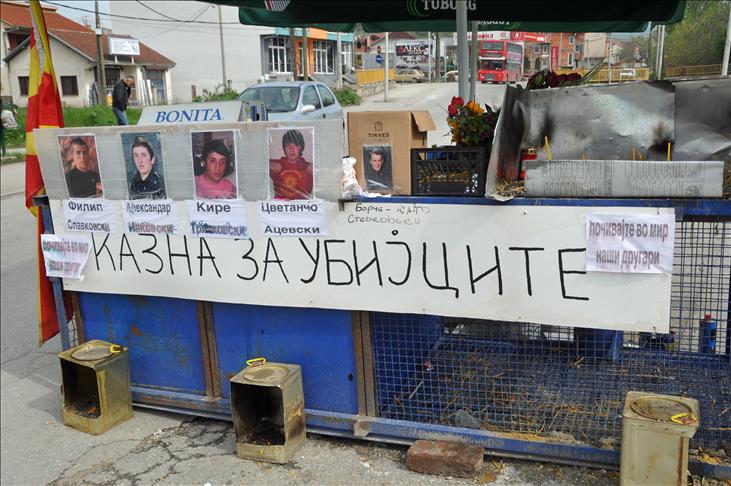 TUBORG
BONITA
TIKVEŠ
АЛЕКС
Филип
Славковски
Александар
Наќевски
Кире
Тричковски
Цветанчо
Ацевски
Борче - КАТО
Стевковски
почивајте во мир
наши другари
КАЗНА ЗА УБИЈЦИТЕ
почивајте во мир
наши другари